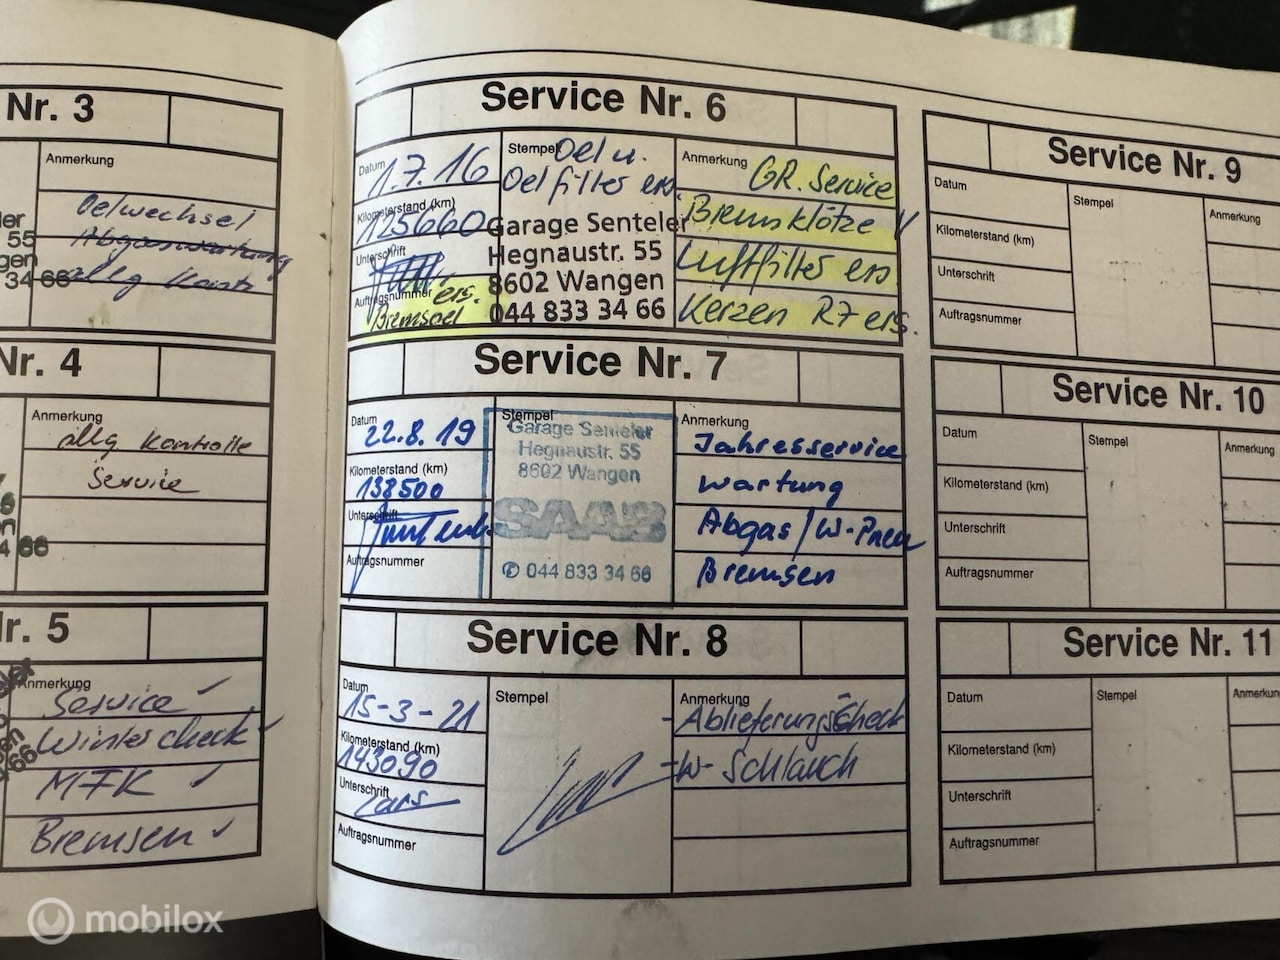 Nr. 3
Anmerkung
Oelwechsel
Abgaswartung
allg Kontr
55
34 66
Nr. 4
Anmerkung
allg Kontrolle
Service
66
Nr. 5
Anmerkung
Service ✓
Wintercheck ✓
MFK ✓
Bremsen ✓
Service Nr. 6
Datum
1.7.16
Kilometerstand (km)
125660
Unterschrift
Auftragsnummer ers.
Bremsoel
Stempel Oel u.
Oelfilter ers.
Garage Senteler
Hegnaustr. 55
8602 Wangen
044 833 34 66
Anmerkung GR. Service
Bremsklötze V
Luftfilter ers
Kerzen R7 ers.
Service Nr. 7
Datum
22.8.19
Kilometerstand (km)
138500
Unterschrift
Auftragsnummer
Stempel
Garage Senteler
Hegnaustr. 55
8602 Wangen
SAAB
✆ 044 833 34 66
Anmerkung
Jahresservice
wartung
Abgas/W-Pneu
Bremsen
Service Nr. 8
Datum
15-3-21
Kilometerstand (km)
143090
Unterschrift
Lars
Auftragsnummer
Stempel
Anmerkung
-Ablieferungscheck
-W-Schlauch
Service Nr. 9
Datum
Kilometerstand (km)
Unterschrift
Auftragsnummer
Stempel
Anmerkung
Service Nr. 10
Datum
Kilometerstand (km)
Unterschrift
Auftragsnummer
Stempel
Anmerkung
Service Nr. 11
Datum
Kilometerstand (km)
Unterschrift
Auftragsnummer
Stempel
Anmerkung
mobilox